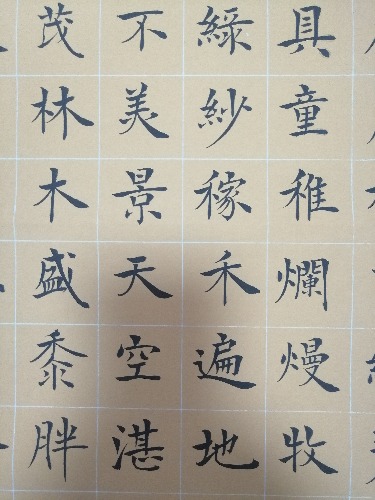 具童稚爛熳牧
綠紗稼禾遍地
不美景天空湛
茂林木盛黍胖